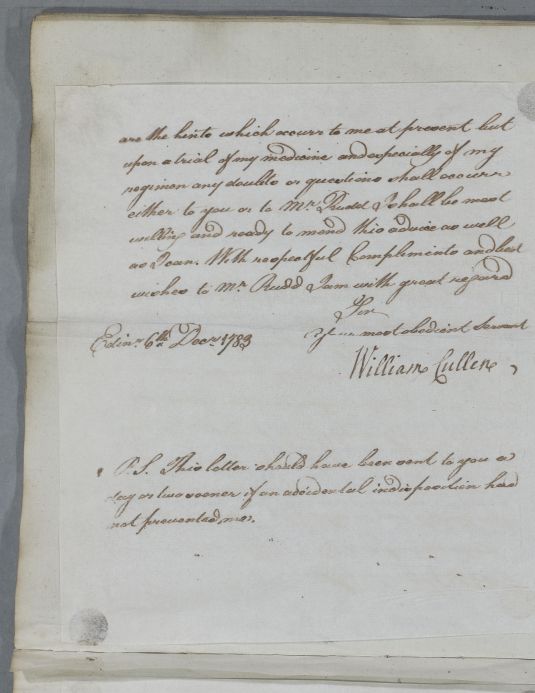 are the hints which occurr to me at present but
upon a trial of my medicine and especially of my
regimen any doubts or questions shall occurr
either to you or to Mr. Rudd I shall be most
willing and ready to mend this advice as well
as I can. With respectful Compliments and best
wishes to Mr. Rudd I am with great regard
Sir
Edinr. 6th. Decr. 1783
Your most obedient Servant
William Cullen
P.S. This letter should have been sent to you a
day or two sooner if an accidental indisposition had
not prevented me.